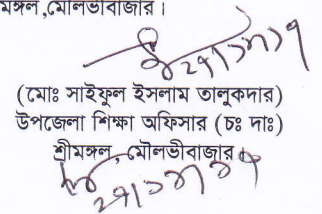 মঙ্গল,মৌলভীবাজার।
(মোঃ সাইফুল ইসলাম তালুকদার)
উপজেলা শিক্ষা অফিসার (চঃ দাঃ)
শ্রীমঙ্গল, মৌলভীবাজার